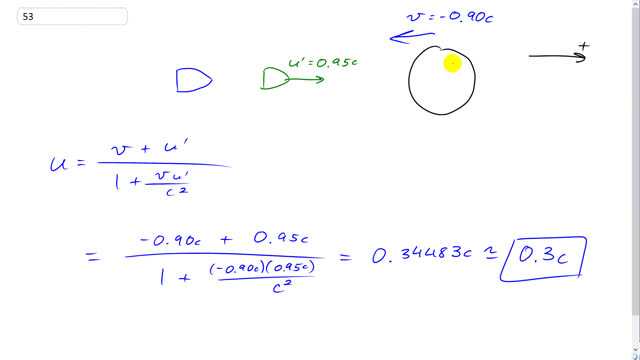 53
v = -0.90c
+
u' = 0.95c
u = (v + u') / (1 + vu'/c²)
= (-0.90c + 0.95c) / (1 + (-0.90c)(0.95c)/c²) = 0.34483c ≃ 0.3c